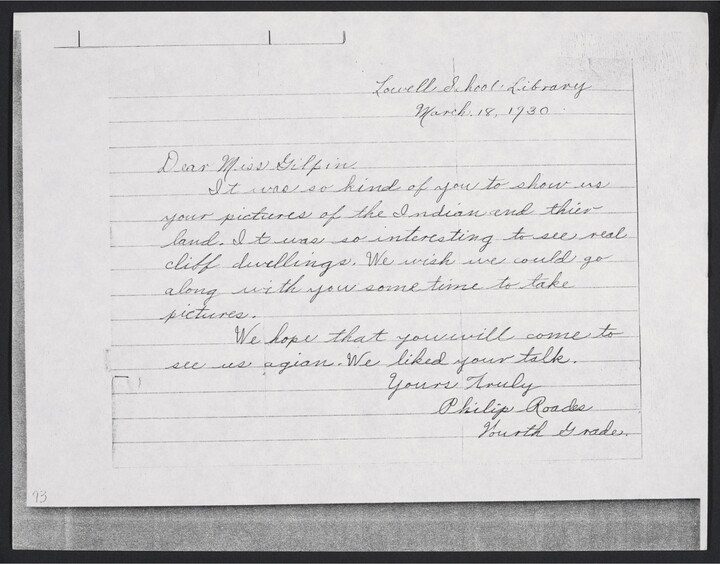 Lowell School Library
March. 18, 1930.
Dear Miss Gilpin,
It was so kind of you to show us
your pictures of the Indian and thier
land. It was so interesting to see real
cliff dwellings. We wish we could go
along with you some time to take
pictures.
We hope that you will come to
see us agian. We liked your talk.
Yours Truly
Philip Roades
Fourth Grade.
93